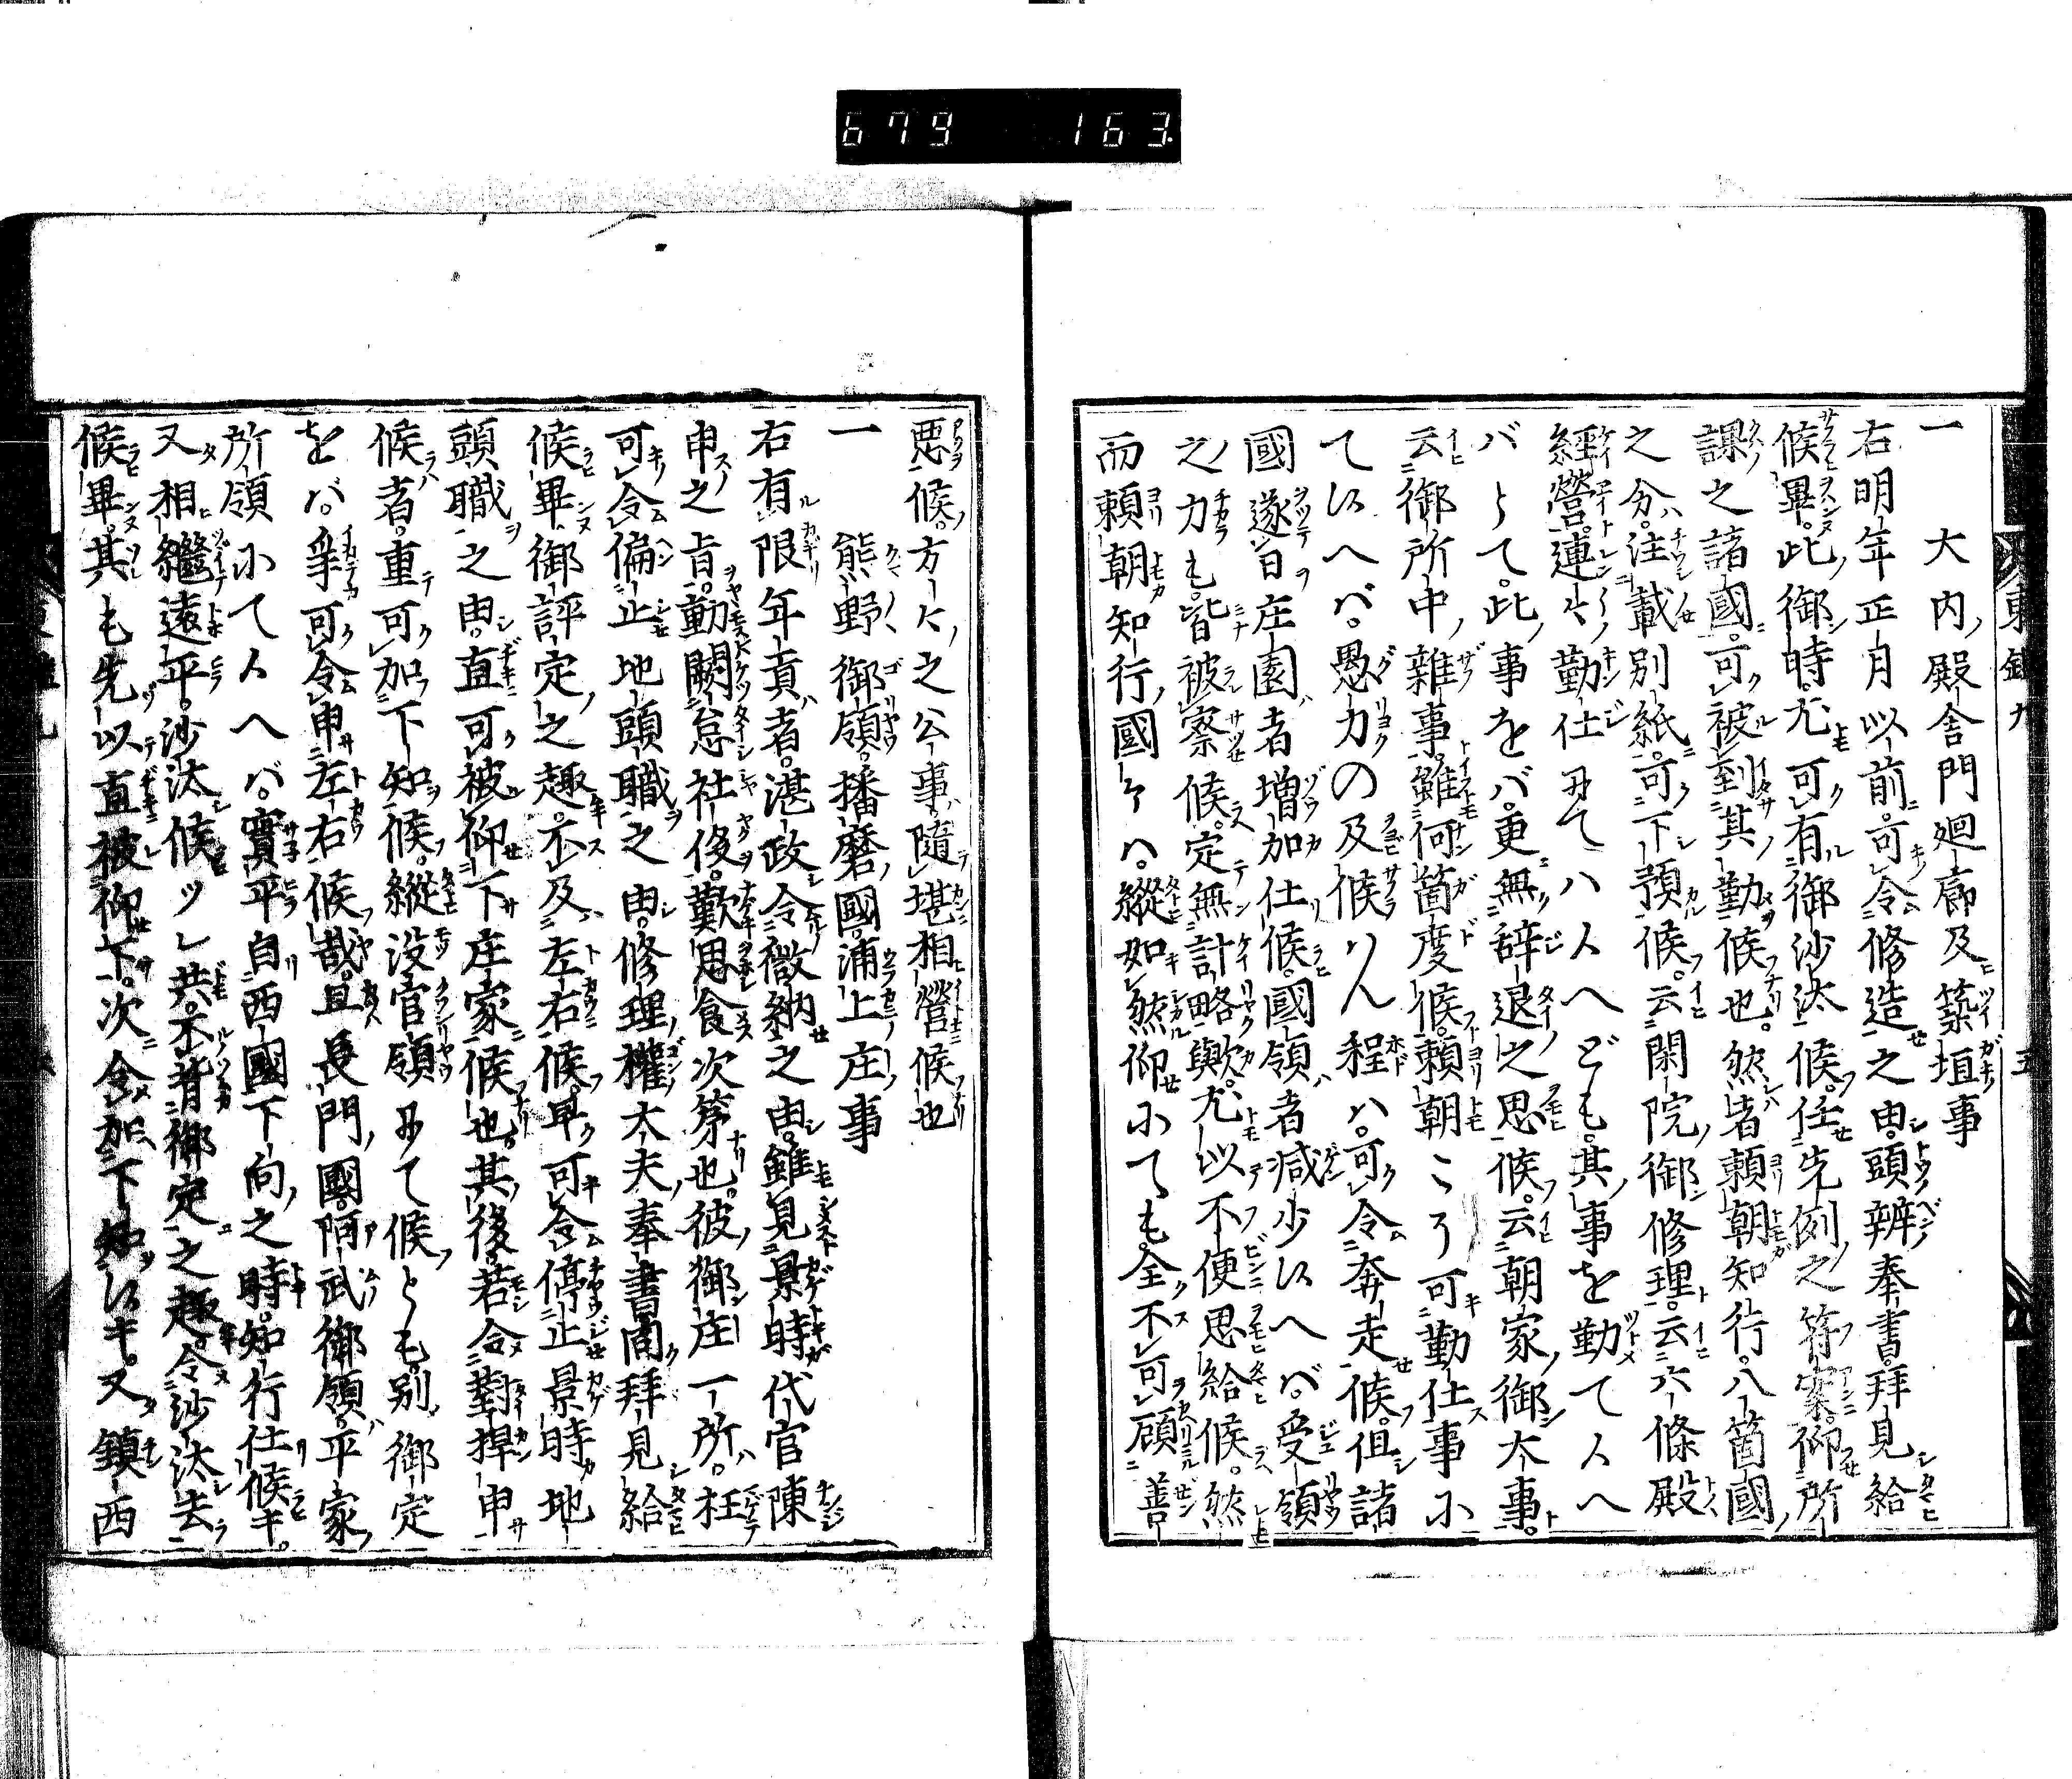 679 163
東鑑九 五
一 大内殿舎門廻廊及築垣事
右明年正月以前可令修造之由頭辨奉書拜見給
候畢。此御時尤可有御沙汰候。任先例之符案。仰所
課之諸國。可被到其勤候也。然者頼朝知行八箇國
之分。注載別紙。可下預候。云閑院御修理。云六條殿
經營。連々勤仕
バとて。此事をバ。更無辞退之思候。云朝家御大事。
云御所中雜事。雖何箇度候。頼朝こそ可勤仕事に
て候へバ。愚力の及候はん程ハ。可令奔走候。但諸
國遂日庄園者増加仕候。國領者減少候へバ。受領
之力も。皆被察候。定無計略歟。尤以不便思給候。然
而頼朝知行國々ハ。縦如然仰にても。全不可顧善
悪候。方々之公事。隨堪相營候也
一 熊野御領。播磨國浦上庄事
右有限年貢者。湛政令徴納之由。雖見景時代官陳
申之旨。動闕怠社役。歎思食次第也。彼御庄一所。枉
可令偏止地頭職之由。修理權大夫奉書開拜見給
候畢。御評定之趣。不及左右候。早可令停止景時地
頭職之由。直可被仰下庄家候也。其後若令對捍申
候者。重可加下知候。縦没官領にて候とも。別御定
をバ。爭可令申左右候哉。且長門國。阿武御領。平家
所領にて候へバ。實平自西國下向之時。知行仕候キ。
又相繼遠平。沙汰候ツレ共。不背御定之趣。令沙汰去
候畢。其も先以直被仰下。次令加下知候キ。又鎮西